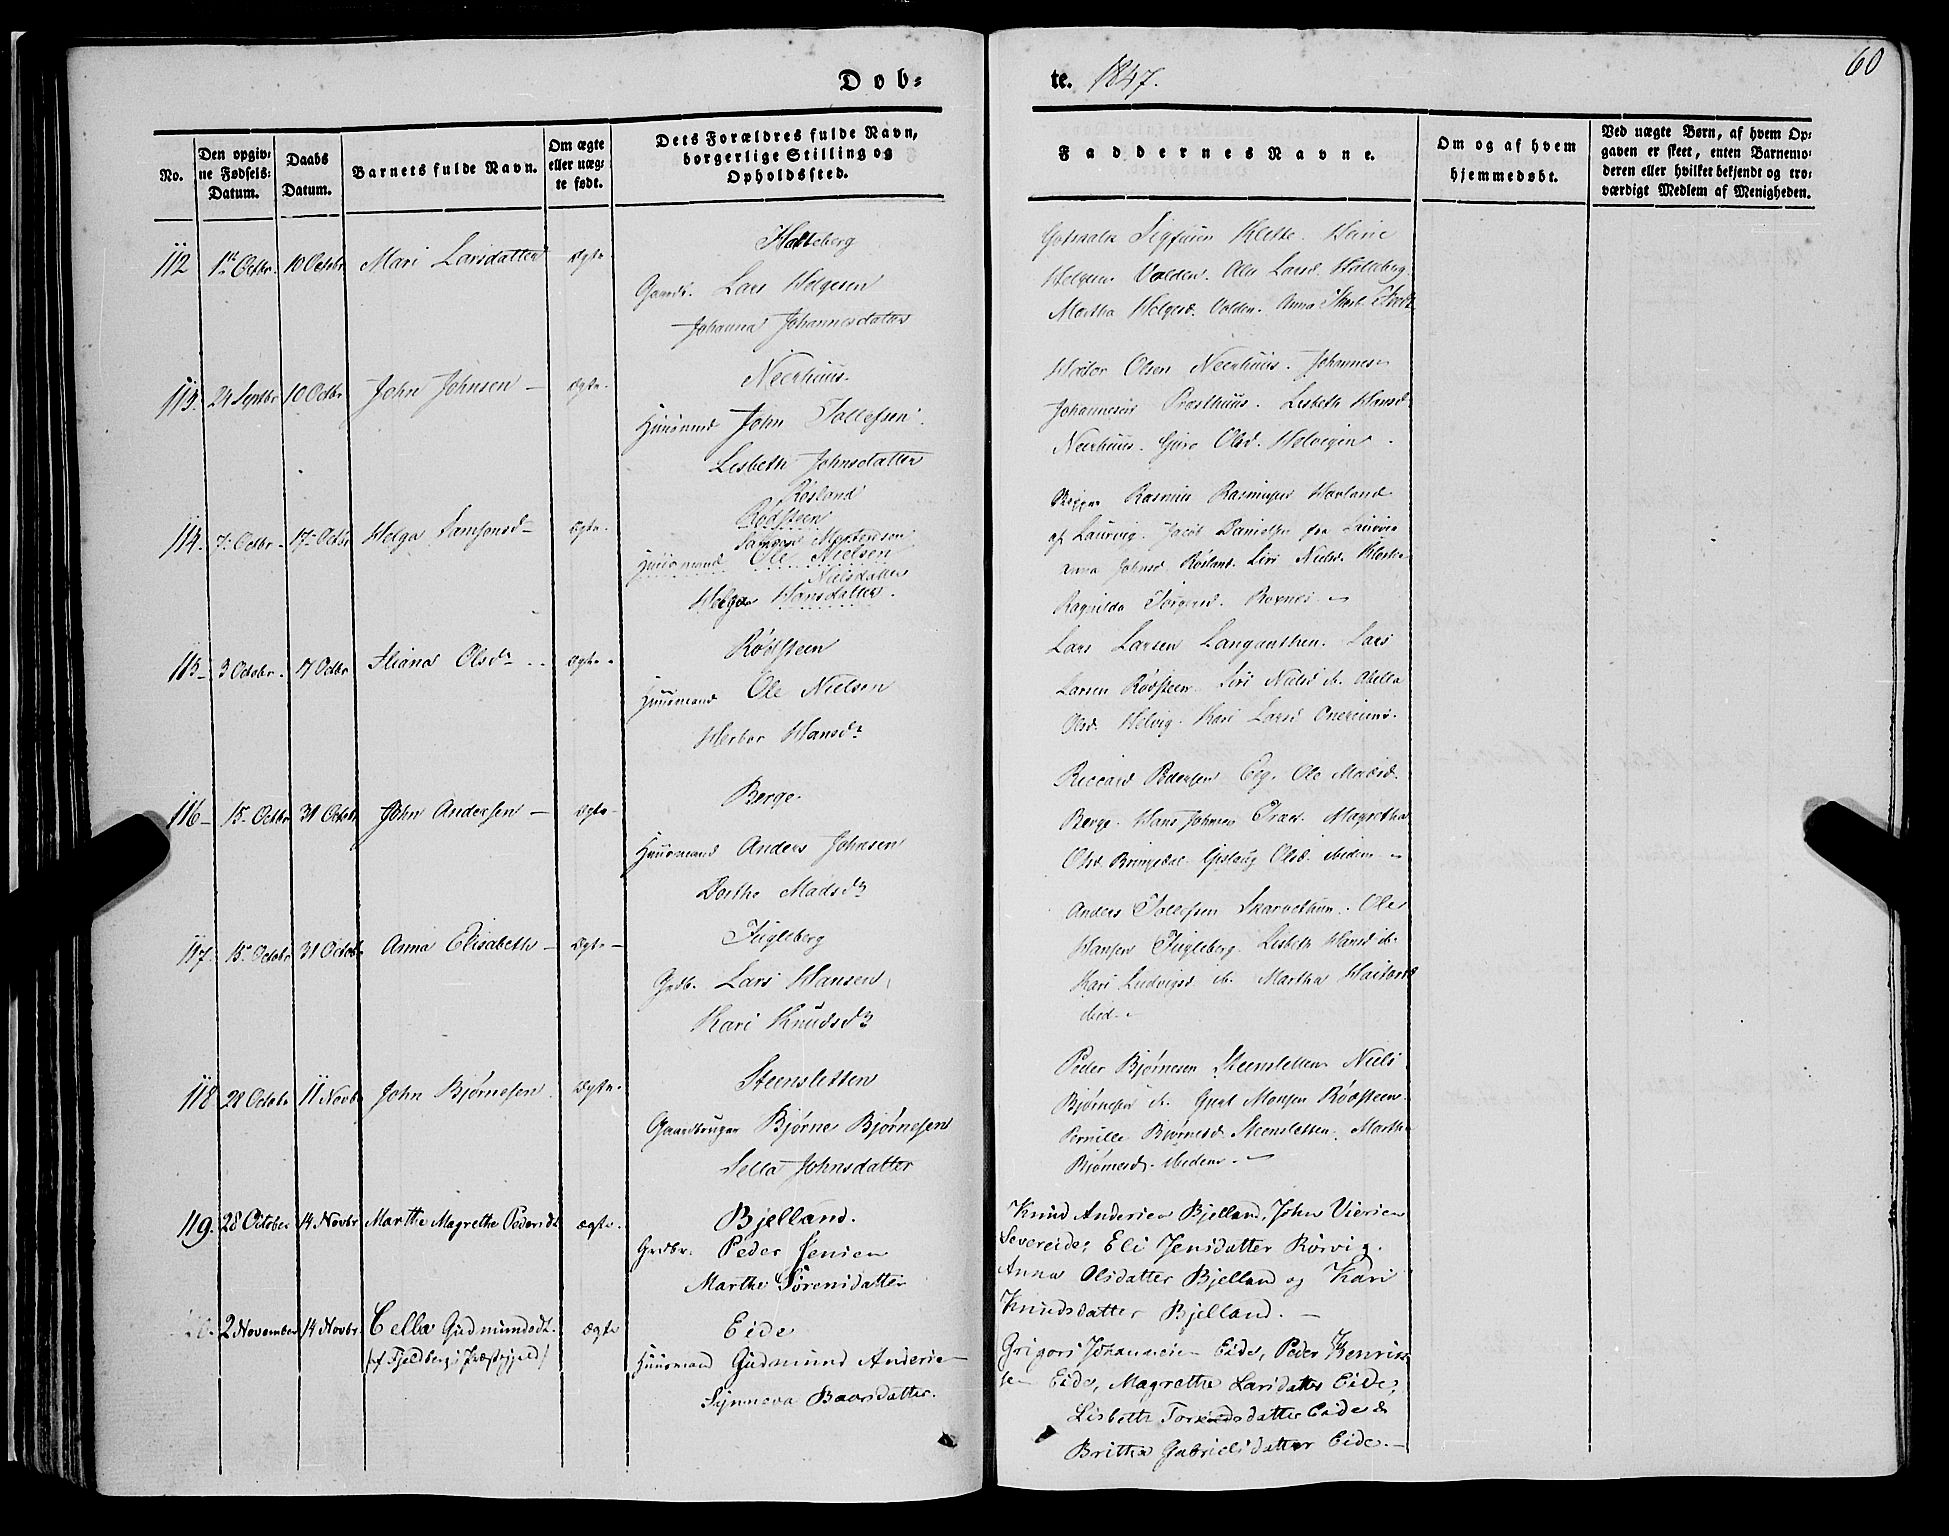 60
Dob=
te. 1847.
No.
Den opgiv=
ne Fødsels=
Datum.
Daabs
Datum.
Barnets fulde Navn.
Om ægte
eller uæg=
te født.
Dets Forældres fulde Navn,
borgerlige Stilling og
Opholdssted.
Faddernes Navne.
Om og af hvem
hjemmedøbt.
Ved uægte Børn, af hvem Op=
gaven er skeet, enten Barnemo=
deren eller hvilket bekjendt og tro=
værdigt Medlem af Menigheden.
112 1ste Octbr. 10 Octobr Mari Larsdatter ægte
Halleberg
Gaardb. Lars Helgesen
Johanna Johannesdatter
Sigfusen Klette.
Helgesen Valden. Ole Larsd. Halleberg
Martha Helgesd. Valden. Anna
113. 24 Septbr 10 Octbr John Johnsen - ægte.
Neerhuus.
Huusmand John Tollefsen
Lisbeth Johnsdatter
Olsen Neerhuus. Johannes
Johannesen Præsthuus. Lisbeth Hansd.
Neerhuus. Guro Olsd. Helvigen.
114. 7- Octbr. 17- Octbr Helga Samsonsd- ægte.
Røsland
Rødsteen
Samson Mortensen
Huusmand Ole Nielsen
Nielsdatter
Helga Hansdatter.
Rasmus Rasmussen Havland
af Laurvig. Jacob Danielsen fra Laurvig
Anna Johnsd. Røsland. Siri Nielsd. Klette
Ragnilda Torgersd. Rovnes.
115- 3 Octobr. 17 Octbr Stiana Olsdr. ægte.
Rødsteen
Huusmand Ole Nielsen
Herbor Hansdr
Lars Larsen Langanthen. Lars
Larsen Rødsteen. Siri Nielsd. ib.
Olsd. Helvig. Kari Larsd.
116- 15- Octbr 31 Octobr John Andersen - ægte.
Berge.
Huusmand Anders Johnsen
Dorthe Madsdr
Riccard Pedersen Eeg. Ole Madsd.
Berge. Hans Johnsen Magretha
Olsd. Bringedal. Gislaug Olsd. ibidem
117. 15. Octobr 31 Octobr Anna Elisabeth - ægte-
Fugleberg
Grdb. Lars Hansen,
Kari Knudsdr
Anders Tollefsen Skarvethun. Ole
Hansen Fugleberg. Lisbeth Hansd. ib.
Kari Ludvigsd. ib. Martha
ibid.
118 28 Octobr 11 Novb John Bjørnesen. ægte.
Steensletten
Gaardbruger Bjørne Bjørnesen
Sella Johnsdatter
Peder Bjørnesen Steensletten Niels
Bjørnesen ib. Monsen Rødsteen.
Pernille Bjørnesd. Steensletten. Martha
Bjørnesd. ibidem.
119. 28 October 14 Novbr. Marthe Magrethe Pedersdt. ægte.
Bjelland.
Grdbr. Peder Jensen
Marthe Sørensdatter
Knud Andersen Bjelland, John Viersen
Severeide, Eli Jensdatter Rörvig.
Anna Olsdatter Bjelland og Kari
Knudsdatter Bjelland. -
2 November 14 Novbr. Cella Gudmundsdt. ægte
/af Fjeldbergs Præstegjeld/
Eide
Huusmand Gudmund Anderse-
Synneva Baarsdatter.
Grigors Johannesen Eide, Peder Henrik-
se- Eide, Magrethe Larsdatter Eide,
Lisbeth Torkildsdatter Eide &
Britha Gabrielsdatter Eide. -